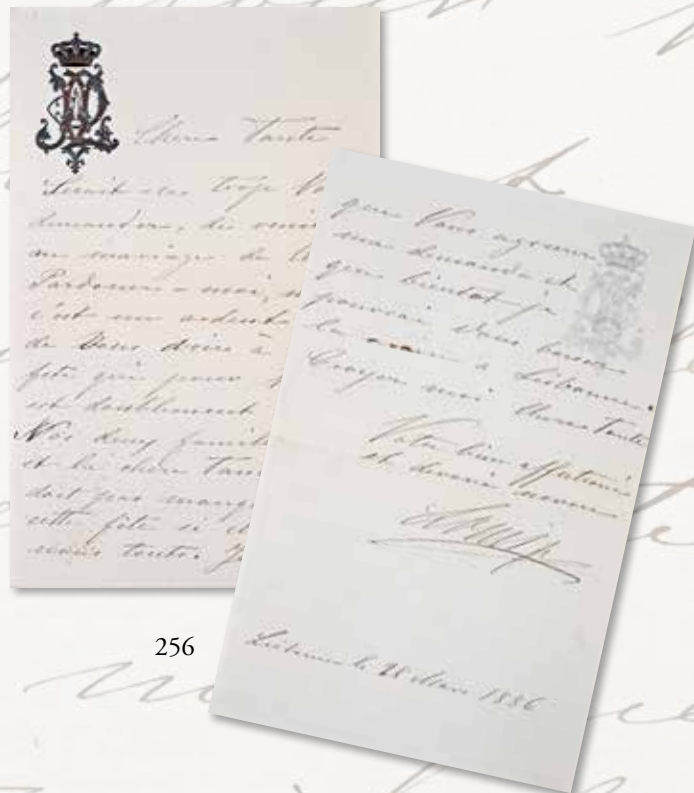 Chère Tante
Serait-ce trop Vo
demander, de venir
au mariage de
Pardonnez-moi,
c'est un ardent
de Vous avoir à
fête qui pour
est doublement
Nos deux famil
et la chère Tan
doit pas manq
cette fête si
mais toutes
que Vous agréerez
ma demande et
que bientôt je
pourrai Vous baiser
la main à Lisbonne.
Croyez moi Chère Tante
Votre bien affectionné
et dévoué neveu
Louis
Lisbonne le 28 Mars 1886
256